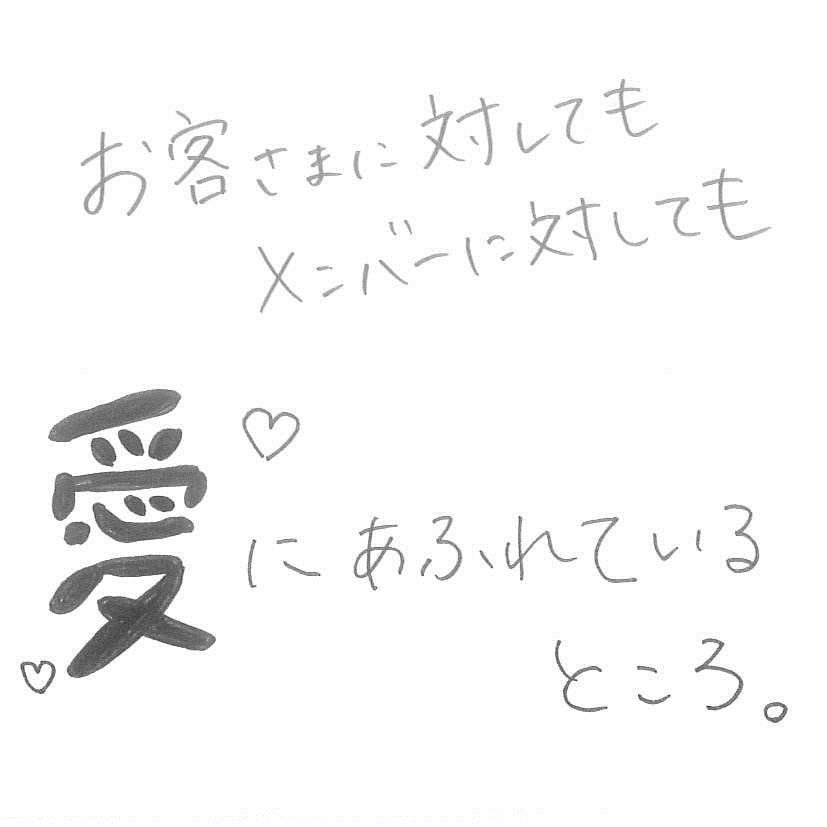 お客さまに対しても
メンバーに対しても
愛♡にあふれている
ところ。